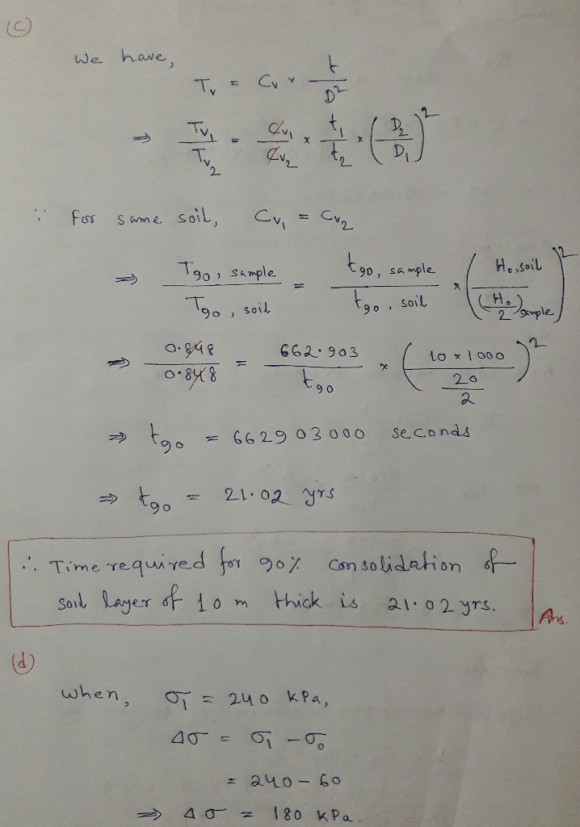 (c)
We have,
T_v = C_v × t/D²
⇒ T_v₁/T_v₂ = C_v₁/C_v₂ × t₁/t₂ × (D₂/D₁)²
∵ For same soil, C_v₁ = C_v₂
⇒ T₉₀, sample / T₉₀, soil = t₉₀, sample / t₉₀, soil × (H₀, soil / (H₀/2) sample)²
⇒ 0.848/0.848 = 662.903/t₉₀ × (10 × 1000 / (20/2))²
⇒ t₉₀ = 662903000 seconds
⇒ t₉₀ = 21.02 yrs
∴ Time required for 90% consolidation of
soil layer of 10 m thick is 21.02 yrs.
Ans.
(d)
When, σ₁ = 240 kPa,
Δσ = σ₁ − σ₀
= 240 − 60
⇒ Δσ = 180 kPa.